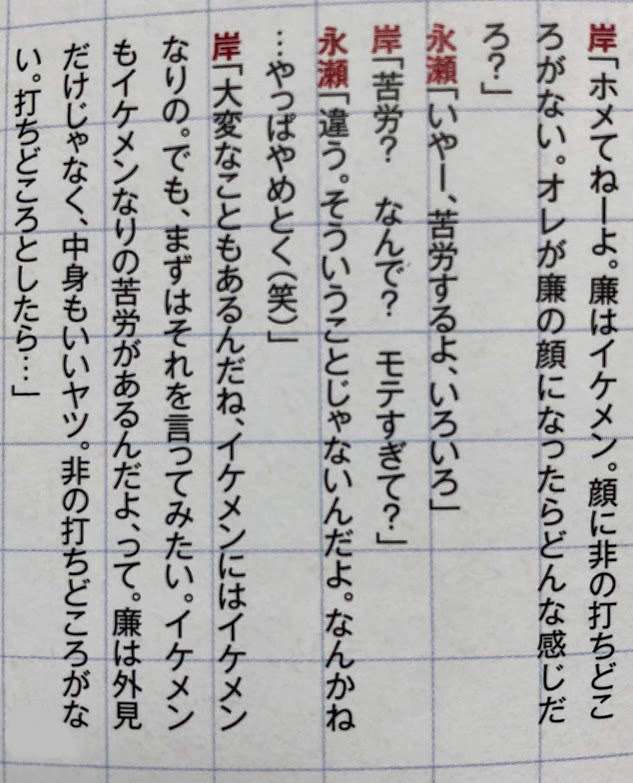 岸「ホメてねーよ。廉はイケメン。顔に非の打ちどこ
ろがない。オレが廉の顔になったらどんな感じだ
ろ?」
永瀬「いやー、苦労するよ、いろいろ」
岸「苦労?　なんで?　モテすぎて?」
永瀬「違う。そういうことじゃないんだよ。なんかね
…やっぱやめとく(笑)」
岸「大変なこともあるんだね、イケメンにはイケメン
なりの。でも、まずはそれを言ってみたい。イケメン
もイケメンなりの苦労があるんだよ、って。廉は外見
だけじゃなく、中身もいいヤツ。非の打ちどころがな
い。打ちどころとしたら…」